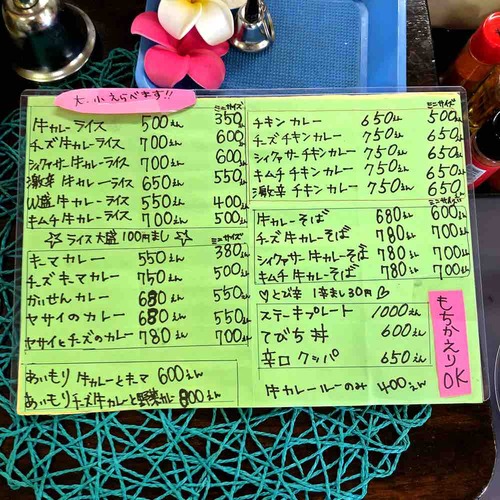 大、小えらべます!!
ミニサイズ
牛カレーライス 500えん 350えん
チーズ牛カレーライス 700えん 600えん
シィクヮサー牛カレーライス 700えん 600えん
激辛牛カレーライス 650えん 550えん
W盛牛カレーライス 550えん 400えん
キムチ牛カレーライス 700えん 500えん
☆ライス大盛100円まし☆ ミニサイズ
キーマカレー 550えん 380えん
チーズキーマカレー 750えん 500えん
かいせんカレー 680えん 550えん
ヤサイのカレー 680えん 550えん
ヤサイとチーズのカレー 780えん 700えん
あいもり 牛カレーとキーマ 600えん
あいもり チーズ牛カレーと野菜カレー 800えん
ミニサイズ
チキンカレー 650えん 500えん
チーズチキンカレー 750えん 650えん
シィクヮサーチキンカレー 750えん 650えん
キムチチキンカレー 750えん 650えん
激辛チキンカレー 750えん 650えん
ミニサイズ
牛カレーそば 680えん 600えん
チーズ牛カレーそば 780えん 700えん
シィクヮサー牛カレーそば 780えん 700えん
キムチ牛カレーそば 780えん 700えん
♡とび辛 1辛まし30円♡
ステーキプレート 1000えん
てびち丼 600えん
辛口クッパ 650えん
牛カレールーのみ 400えん
もちかえりOK